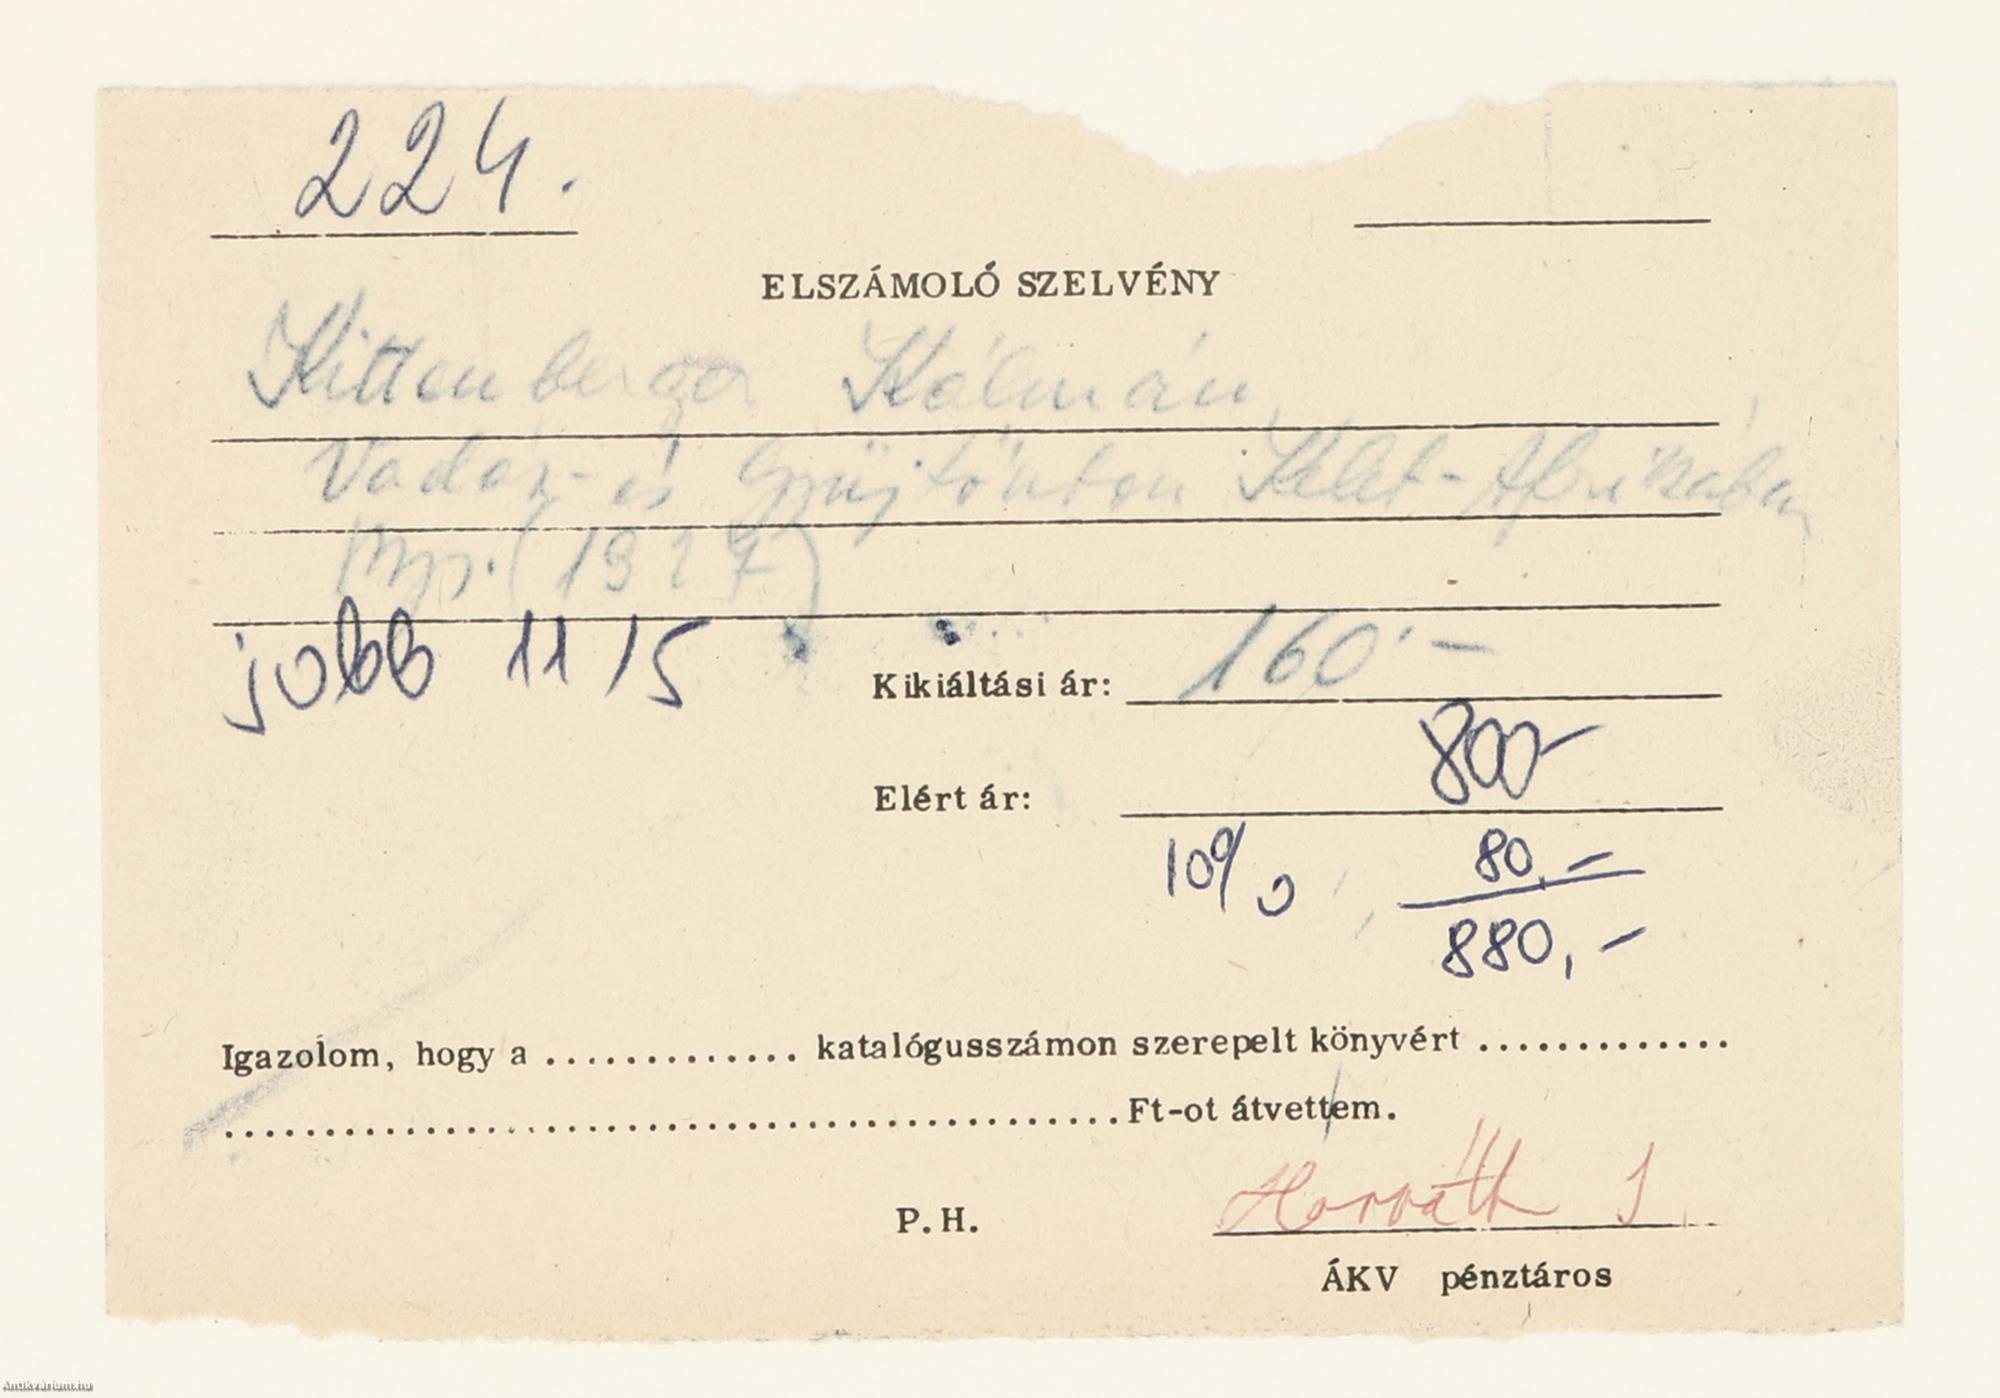 224.
ELSZÁMOLÓ SZELVÉNY
Kittenberger Kálmán,
Vadász- és gyűjtőúton Kelet-Afrikában
Bp. (1927)
jobb 11/5
Kikiáltási ár: 160.-
Elért ár: 800-
10% 80,-
880,-
Igazolom, hogy a ............. katalógusszámon szerepelt könyvért .............
.............................................Ft-ot átvettem.
P.H.
Horváth J
ÁKV pénztáros
Antikvárium.hu